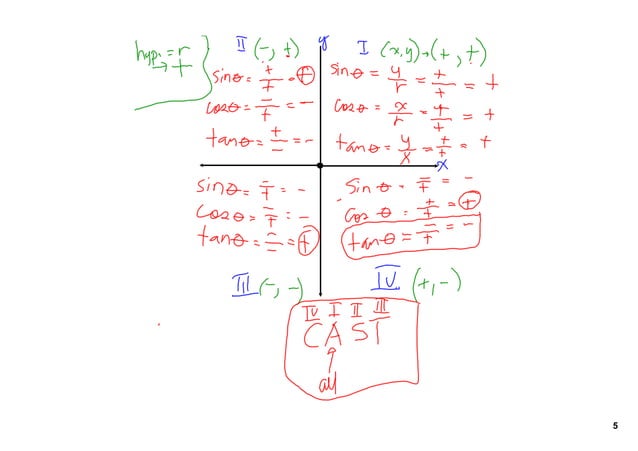 hyp. = r
→ +
II (-, +)
sinθ = +/+ = +
cosθ = -/+ = -
tanθ = +/- = -
y
I (x,y) → (+, +)
sinθ = y/r = +/+ = +
cosθ = x/r = +/+ = +
tanθ = y/x = +/+ = +
x
sinθ = -/+ = -
cosθ = -/+ = -
tanθ = -/- = +
III (-, -)
sinθ = -/+ = -
cosθ = +/+ = +
tanθ = -/+ = -
IV (+, -)
IV I II III
CAST
all
5